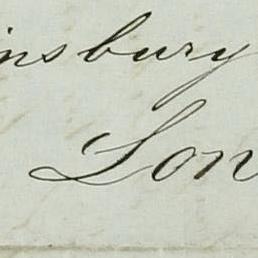 insbury
Lon